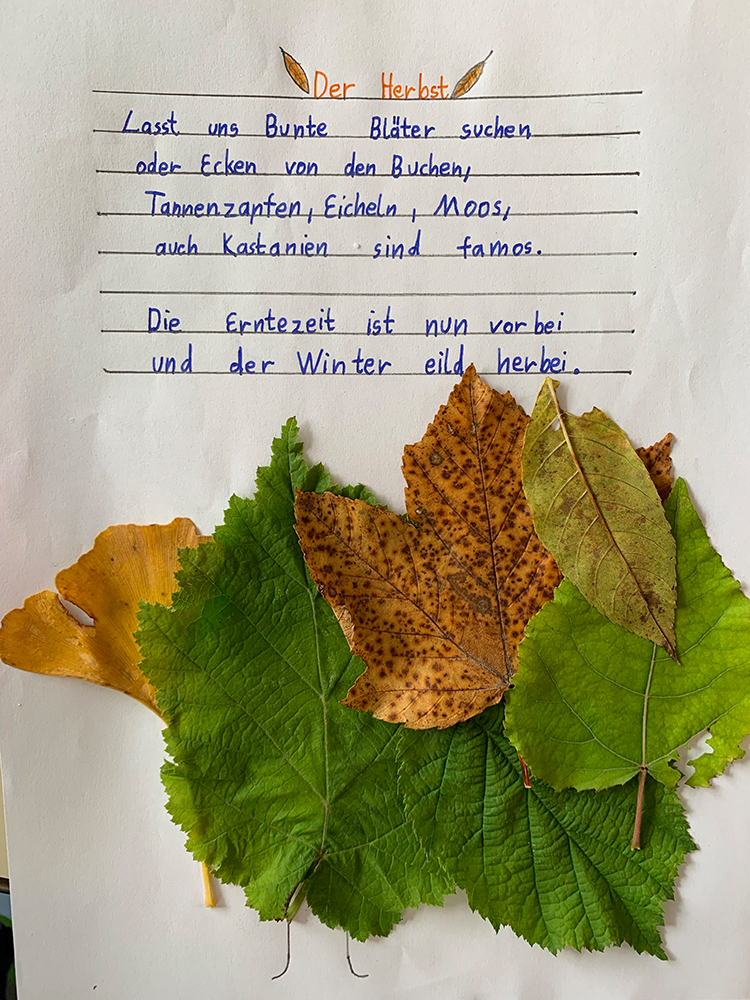 Der Herbst
Lasst uns Bunte Bläter suchen
oder Ecken von den Buchen,
Tannenzapfen, Eicheln, Moos,
auch Kastanien sind famos.
Die Erntezeit ist nun vorbei
und der Winter eild herbei.